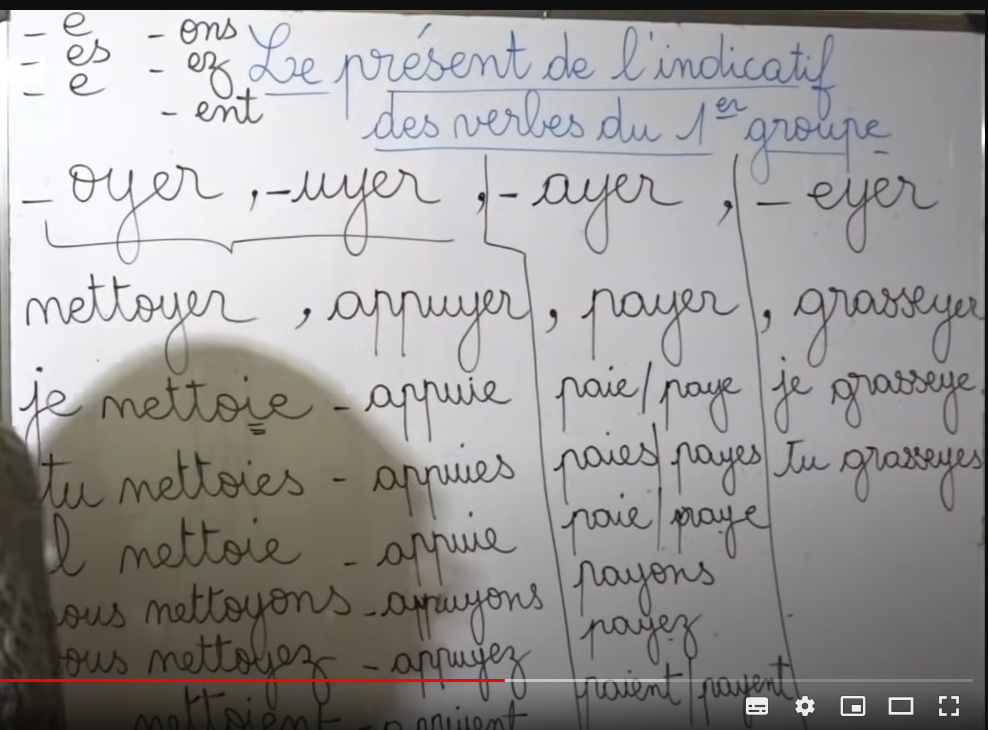 - e - ons
- es - ez Le présent de l'indicatif
- e
- ent des verbes du 1er groupe
- oyer , - uyer , - ayer , - eyer
nettoyer , appuyer , payer , grasseyer
je nettoie - appuie paie/paye je grasseye
tu nettoies - appuies paies/payes Tu grasseyes
l nettoie - appuie paie/paye
ous nettoyons - appuyons payons
ous nettoyez - appuyez payez
nettoient - appuient paient/payent